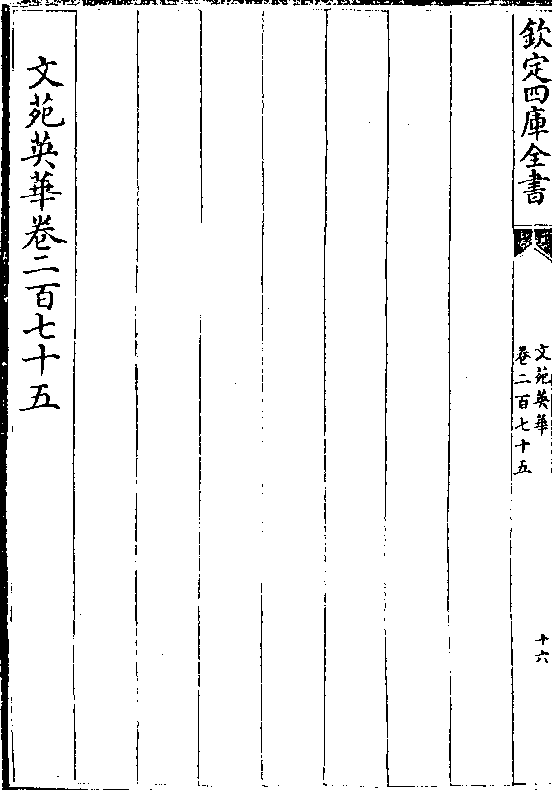 欽定四庫全書
文苑英華
卷二百七十五
十六
文苑英華卷二百七十五